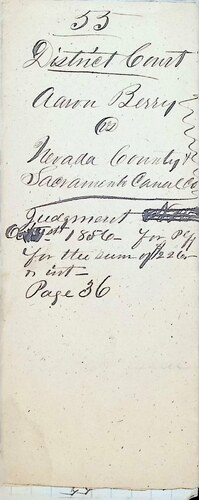 55
District Court
Aaron Berry
vs
Nevada County &
Sacramento Canal Co
Judgment
1856 for Plff
for the sum of $226
& int
Page 36